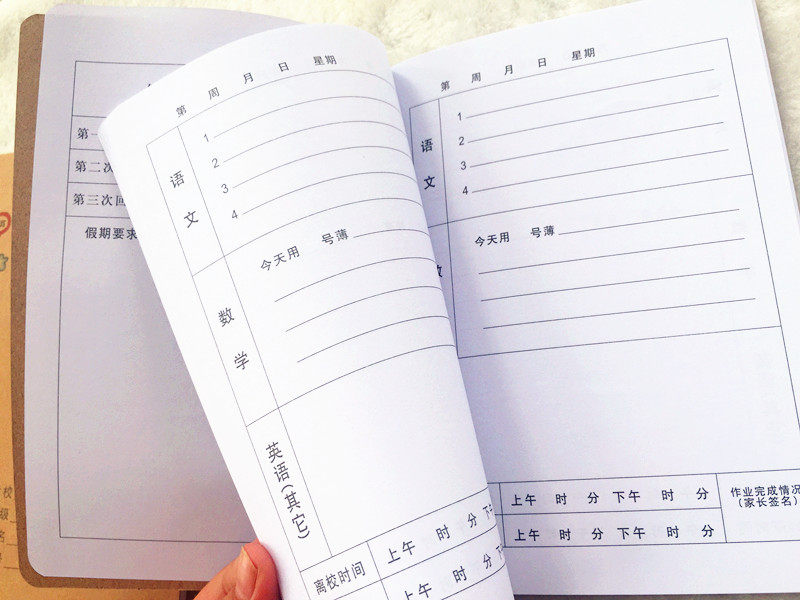 第一
第二次
第三次回
假期要求
第 周 月 日 星期
语文
1
2
3
4
数学
今天用 号薄
英语(其它)
离校时间
上午 时 分 下午
上午 时 分
第 周 月 日 星期
语文
1
2
3
4
数
今天用 号薄
上午 时 分 下午 时 分
上午 时 分 下午 时 分
作业完成情况
(家长签名)
校
级
名